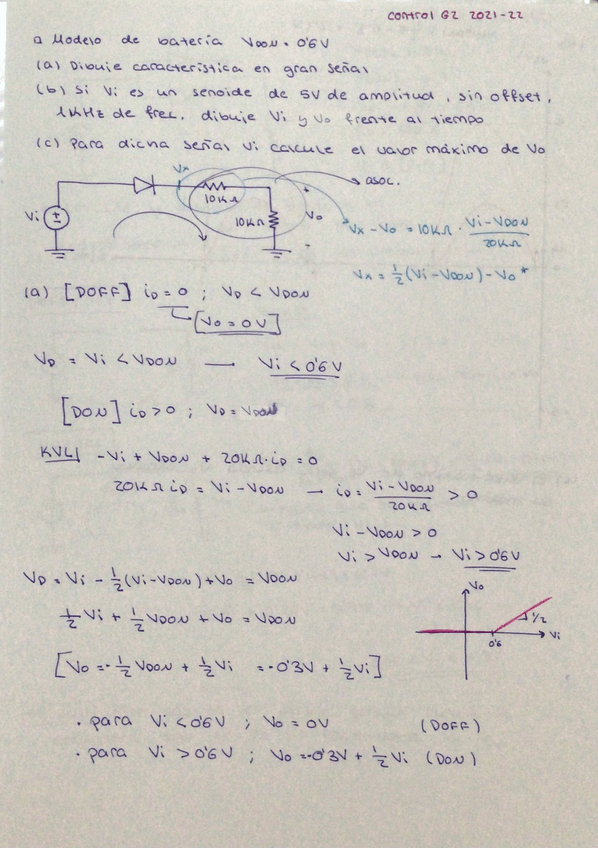 control G2 2021-22
□ Modelo de batería VDON = 0'6V
(a) Dibuje característica en gran señal
(b) Si Vi es un senoide de 5V de amplitud, sin offset,
1KHz de frec. dibuje Vi y Vo frente al tiempo
(c) Para dicha señal Vi calcule el valor máximo de Vo
Vx
asoc.
10KΩ
+
Vi
10KΩ
Vo
-
Vx - Vo = 10KΩ · (Vi - VDON)/20KΩ
Vx = 1/2 (Vi - VDON) - Vo *
(a) [DOFF] iD = 0 ; VD < VDON
[Vo = 0V]
VD = Vi < VDON — Vi < 0'6V
[DON] iD > 0 ; VD = VDON
KVL| -Vi + VDON + 20KΩ·iD = 0
20KΩ iD = Vi - VDON → iD = (Vi - VDON)/20KΩ > 0
Vi - VDON > 0
Vi > VDON → Vi > 0'6V
VD = Vi - 1/2 (Vi - VDON) + Vo = VDON
1/2 Vi + 1/2 VDON + Vo = VDON
[Vo = -1/2 VDON + 1/2 Vi = -0'3V + 1/2 Vi]
Vo
1/2
Vi
0'6
· para Vi < 0'6V ; Vo = 0V (DOFF)
· para Vi > 0'6V ; Vo = -0'3V + 1/2 Vi (DON)